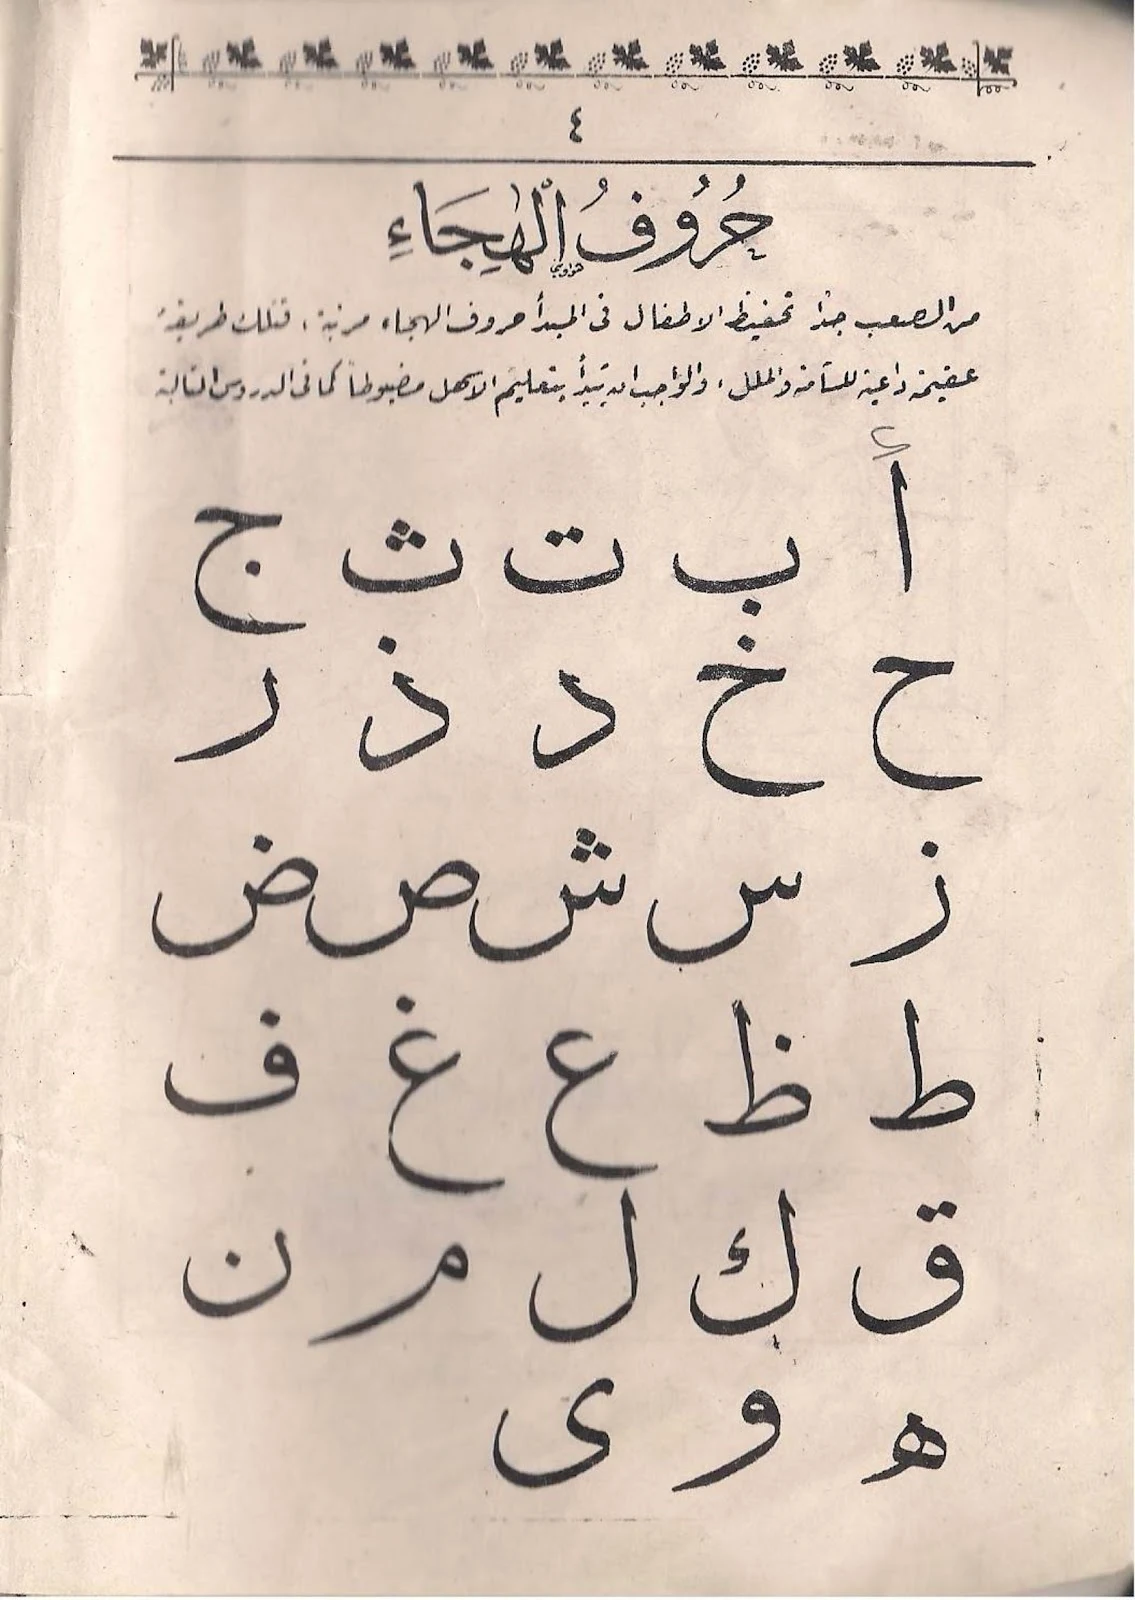 ٤
حُرُوفُ الْهِجَاءِ
من الصعب جداً تحفيظ الاطفال فى المبدأ حروف الهجاء مرتبة، فتلك طريقة
عقيمة داعية للسآمة والملل، والواجب ان يبدأ بتعليم الاسهل مضبوطاً كما فى الدروس التالية
أ ب ت ث ج
ح خ د ذ ر
ز س ش ص ض
ط ظ ع غ ف
ق ك ل م ن
ه و ى